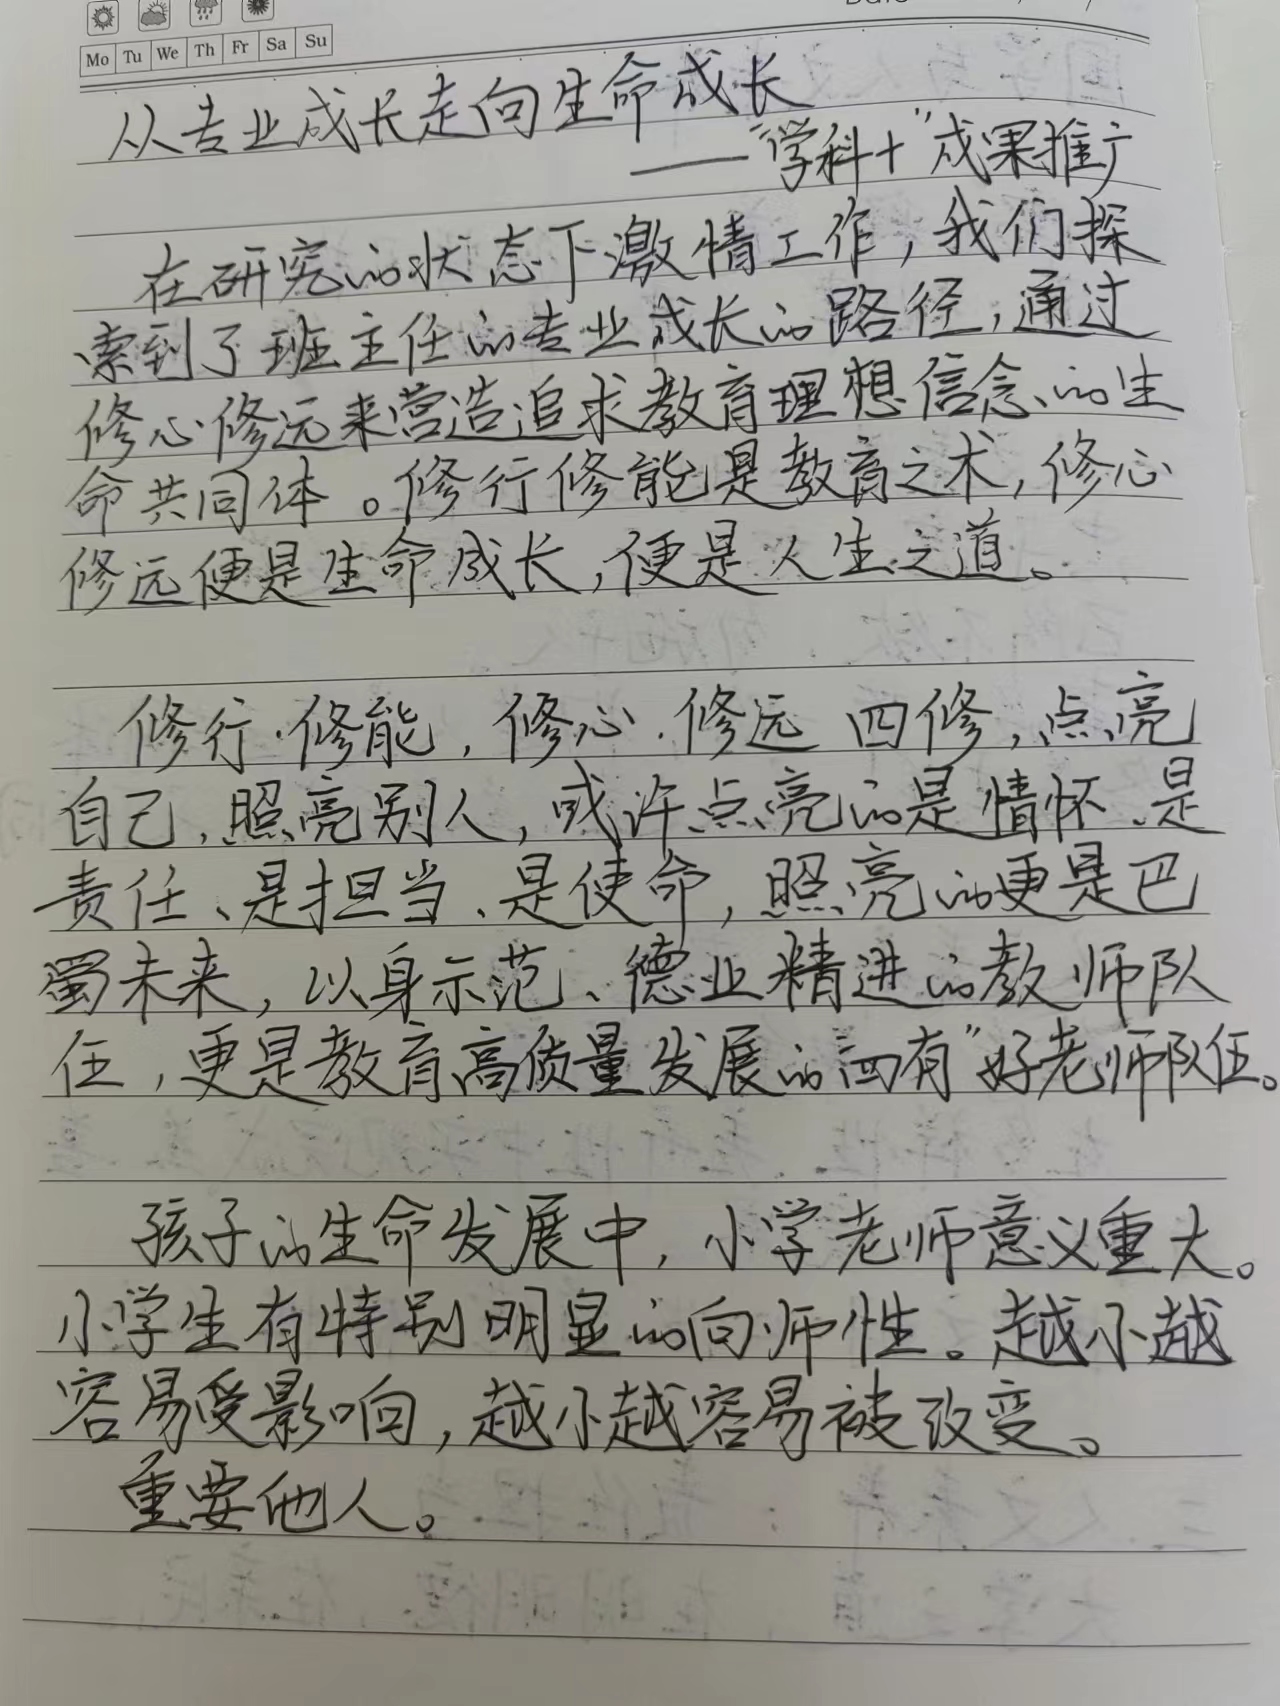 Mo Tu We Th Fr Sa Su
从专业成长走向生命成长
——“学科+”成果推广
在研究的状态下激情工作，我们探
索到了班主任的专业成长的路径，通过
修心修远来营造追求教育理想信念的生
命共同体。修行修能是教育之术，修心
修远便是生命成长，便是人生之道。
修行·修能，修心·修远 四修，点亮
自己，照亮别人，或许点亮的是情怀、是
责任、是担当、是使命，照亮的更是巴
蜀未来，以身示范、德业精进的教师队
伍，更是教育高质量发展的“四有”好老师队伍。
孩子的生命发展中，小学老师意义重大。
小学生有特别明显的向师性。越小越
容易受影响，越小越容易被改变。
重要他人。